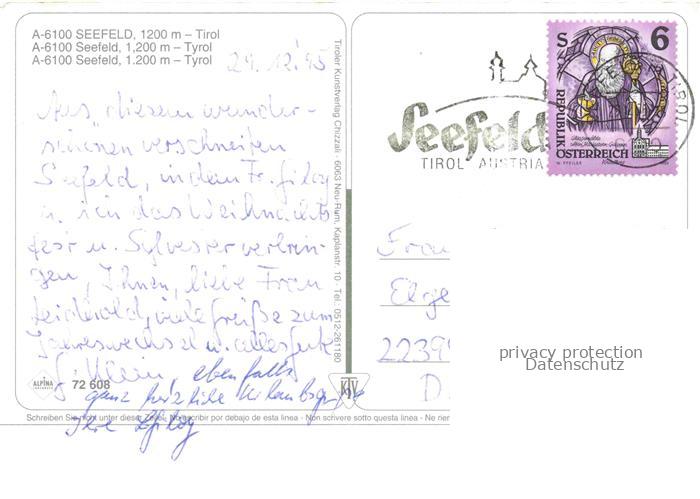 A-6100 SEEFELD, 1200 m – Tirol
A-6100 Seefeld, 1,200 m – Tyrol
A-6100 Seefeld, 1.200 m – Tyrol
29.12.'95
Aus diesem wunder-
schönen verschneiten
Seefeld, in dem Fr.
u. ich das Weihnachts
fest u. Sylvester verbrin-
gen, Ihnen, liebe Frau
viele Grüße zum
Jahreswechsel u. alles Gute
G. Klein ebenfalls
ganz herzliche Urlaubsgrüße
Ihre
ALPINA
72 608
KTV
Schreiben Sie nicht unter dieser Zeile - No escribir por debajo de esta linea - Non scrivere sotto questa linea - Ne rien
Tiroler Kunstverlag Chizzali · 6063 Neu-Rum, Kaplanstr. 10 · Tel. 0512-261180
Seefeld
TIROL AUSTRIA
TIROL
S 6
REPUBLIK
ÖSTERREICH
Frau
2239
D
privacy protection
Datenschutz